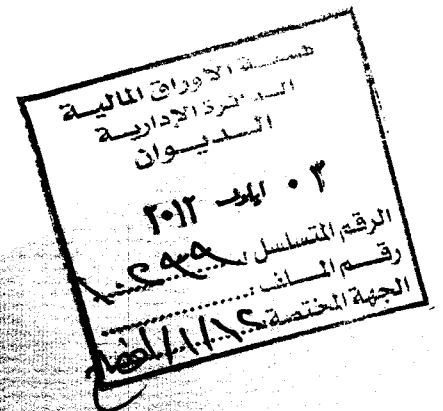 هيئة الاوراق المالية
الدائرة الإدارية
الديوان
٠٣ ايلول ٢٠١٢
الرقم المتسلسل :
رقم الملف :
الجهة المختصة :